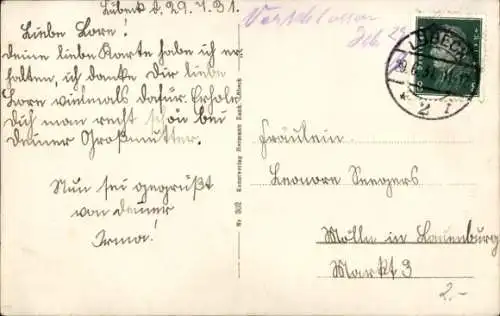 Lübeck d. 29.7.31.
Liebe Lore!
Deine liebe Karte habe ich er-
halten, ich danke Dir liebe
Lore vielmals dafür. Erhole
Dich man recht schön bei
Deiner Großmutter.
Nun sei gegrüßt
von deiner
Irma!
Nr. 302 Kunstverlag Hermann Lübeck
LÜBECK
2
Fräulein
Leonore Seegers
Mölln in Lauenburg
Markt 3
2.-